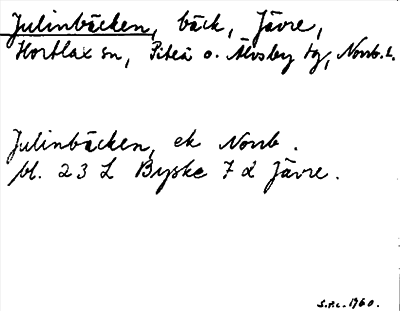 Julinbäcken, bäck, Jävre,
Hortlax sn, Piteå o. Älvsby tg, Norrb. l.
Julinbäcken, ek Norrb.
bl. 23 L Byske 7 d Jävre.
S.P.C. 1960.